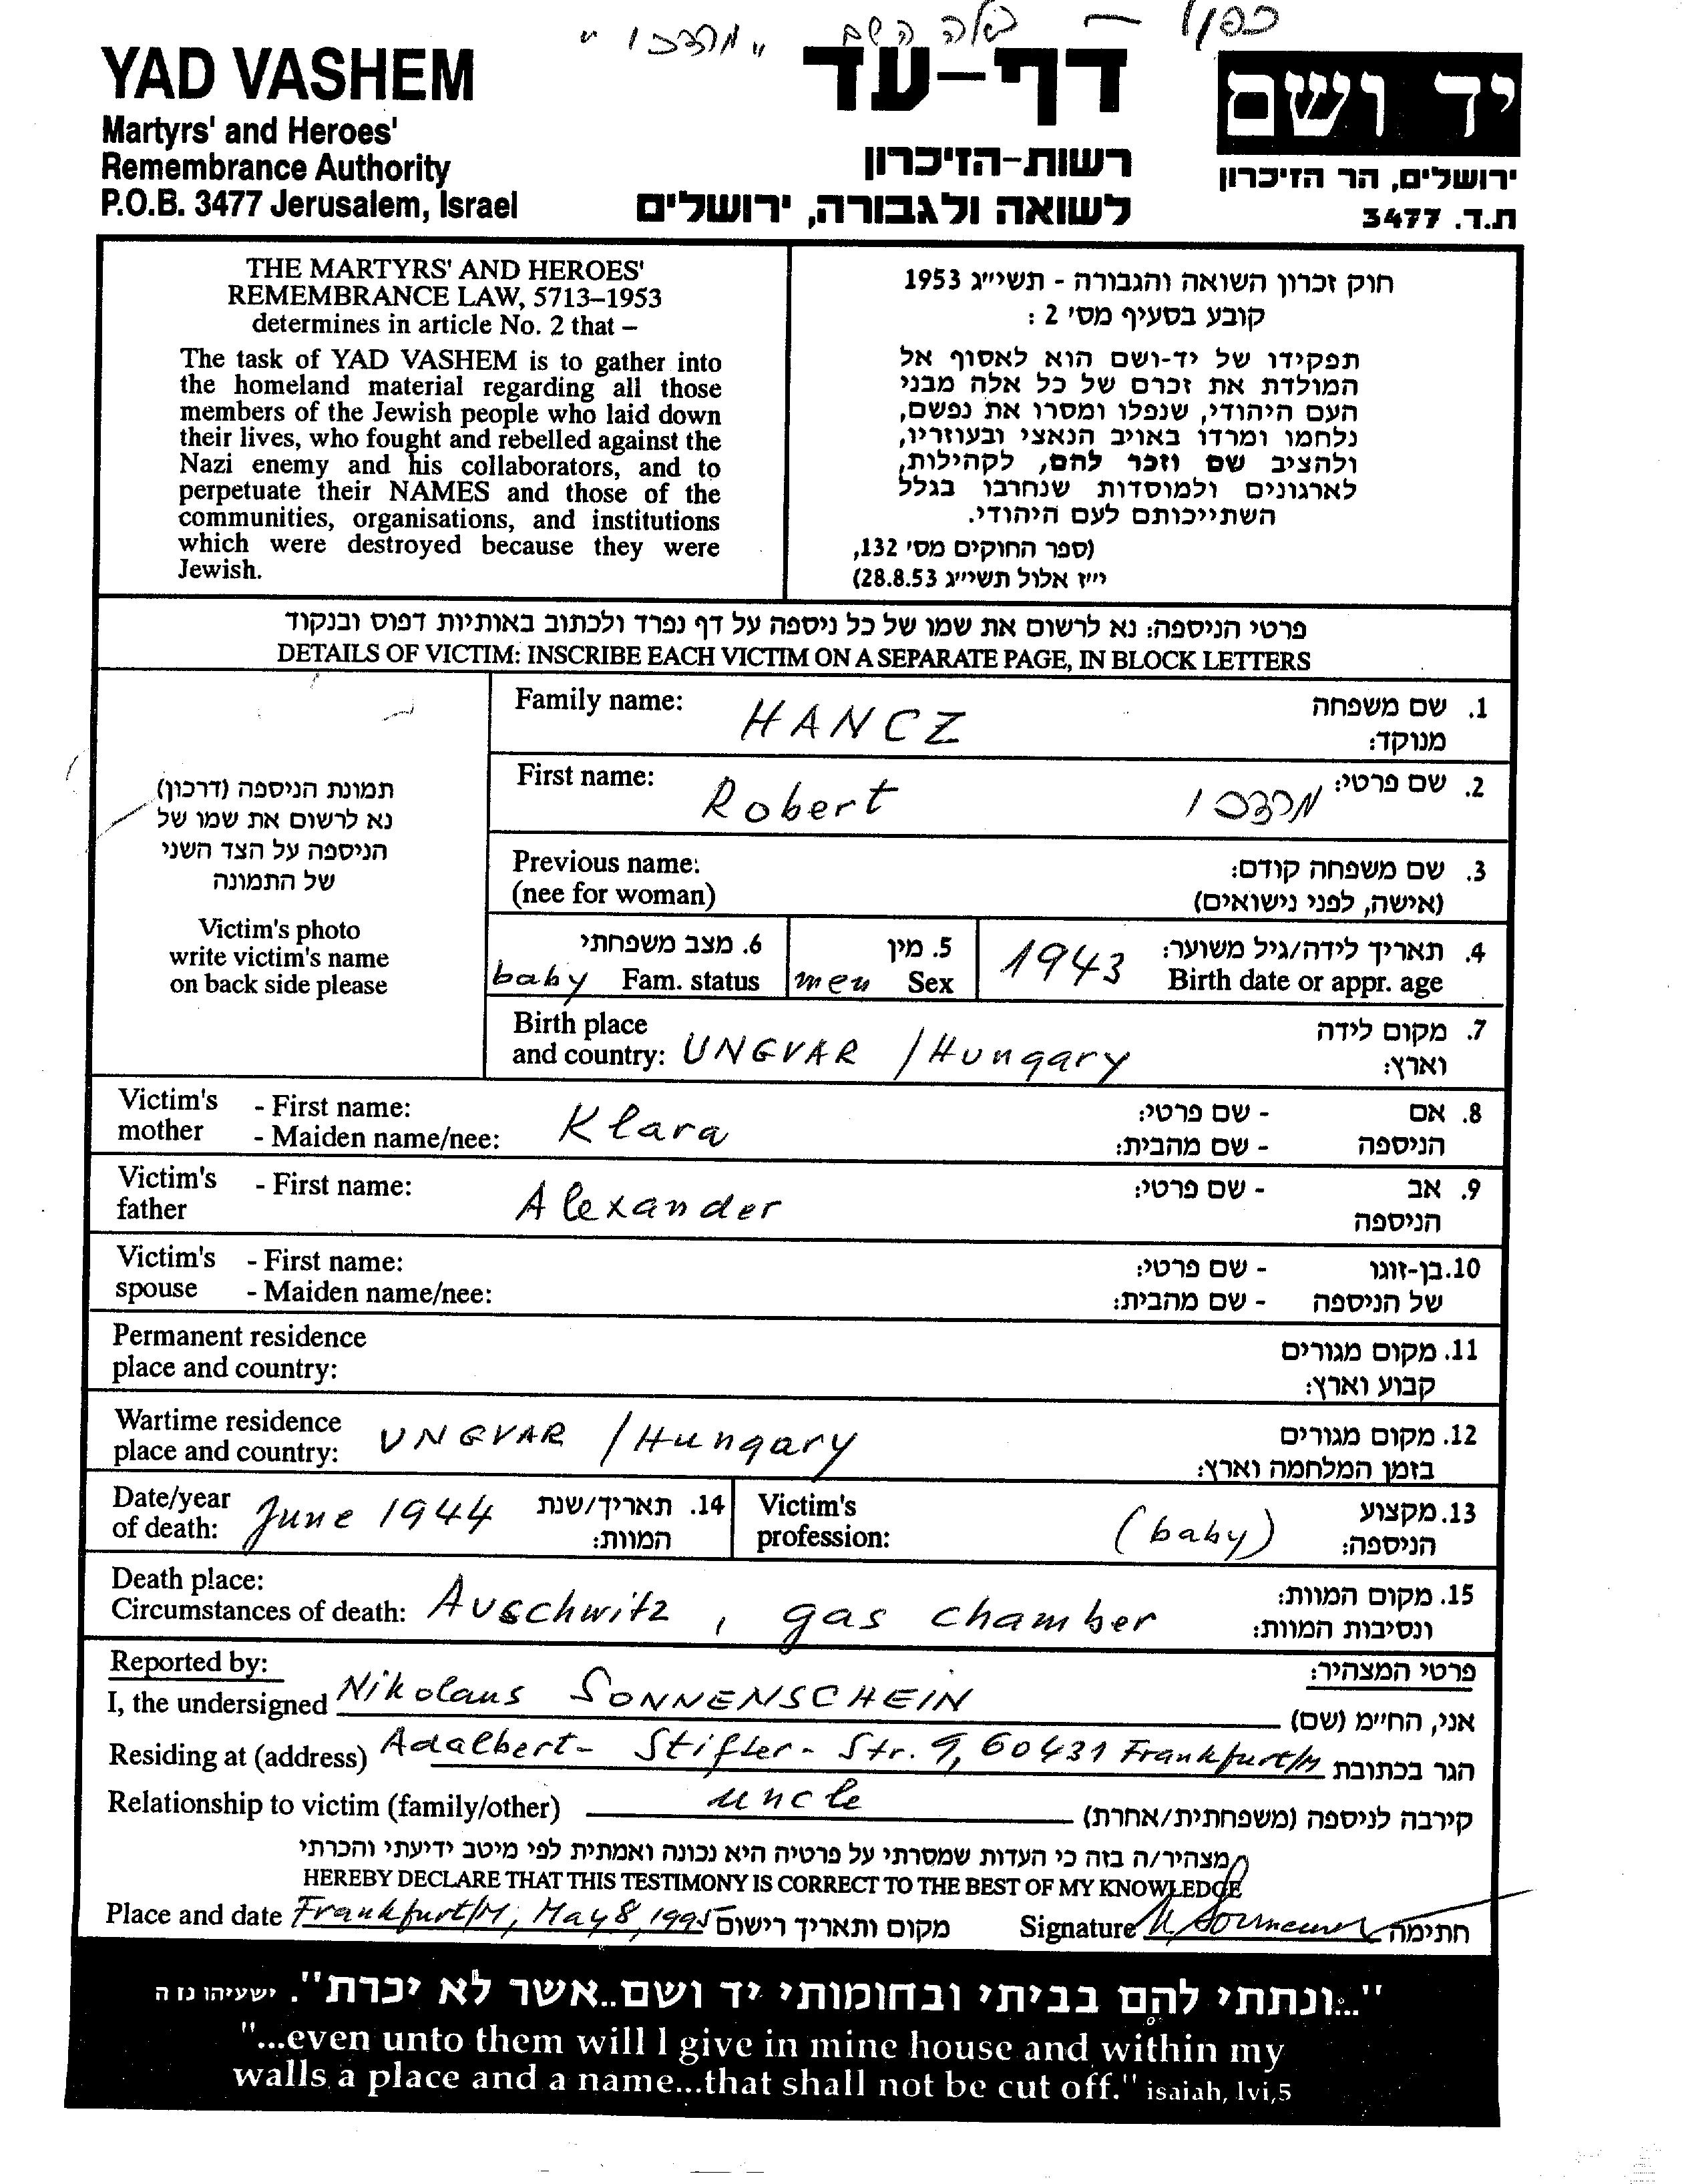 כפול – שלה השם "מרדכי"
YAD VASHEM
Martyrs' and Heroes'
Remembrance Authority
P.O.B. 3477 Jerusalem, Israel
דף-עד
רשות-הזיכרון
לשואה ולגבורה, ירושלים
יד ושם
ירושלים, הר הזיכרון
ת.ד. 3477
THE MARTYRS' AND HEROES'
REMEMBRANCE LAW, 5713–1953
determines in article No. 2 that –
The task of YAD VASHEM is to gather into
the homeland material regarding all those
members of the Jewish people who laid down
their lives, who fought and rebelled against the
Nazi enemy and his collaborators, and to
perpetuate their NAMES and those of the
communities, organisations, and institutions
which were destroyed because they were
Jewish.
חוק זכרון השואה והגבורה - תשי״ג 1953
קובע בסעיף מס׳ 2 :
תפקידו של יד-ושם הוא לאסוף אל
המולדת את זכרם של כל אלה מבני
העם היהודי, שנפלו ומסרו את נפשם,
נלחמו ומרדו באויב הנאצי ובעוזריו,
ולהציב שם וזכר להם, לקהילות,
לארגונים ולמוסדות שנחרבו בגלל
השתייכותם לעם היהודי.
(ספר החוקים מס׳ 132,
י״ז אלול תשי״ג 28.8.53)
פרטי הניספה: נא לרשום את שמו של כל ניספה על דף נפרד ולכתוב באותיות דפוס ובנקוד
DETAILS OF VICTIM: INSCRIBE EACH VICTIM ON A SEPARATE PAGE, IN BLOCK LETTERS
תמונת הניספה (דרכון)
נא לרשום את שמו של
הניספה על הצד השני
של התמונה
Victim's photo
write victim's name
on back side please
Family name: HANCZ 1. שם משפחה
מנוקד:
First name: Robert מרדכי 2. שם פרטי:
Previous name: 3. שם משפחה קודם:
(nee for woman) (אישה, לפני נישואים)
6. מצב משפחתי 5. מין 4. תאריך לידה/גיל משוער:
baby Fam. status men Sex 1943 Birth date or appr. age
Birth place 7. מקום לידה
and country: UNGVAR / Hungary וארץ:
Victim's - First name: Klara - שם פרטי: 8. אם
mother - Maiden name/nee: - שם מהבית: הניספה
Victim's - First name: Alexander - שם פרטי: 9. אב
father הניספה
Victim's - First name: - שם פרטי: 10. בן-זוגו
spouse - Maiden name/nee: - שם מהבית: של הניספה
Permanent residence 11. מקום מגורים
place and country: קבוע וארץ:
Wartime residence 12. מקום מגורים
place and country: UNGVAR / Hungary בזמן המלחמה וארץ:
Date/year 14. תאריך/שנת Victim's 13. מקצוע
of death: June 1944 המוות: profession: (baby) הניספה:
Death place: 15. מקום המוות:
Circumstances of death: Auschwitz, gas chamber ונסיבות המוות:
Reported by: פרטי המצהיר:
I, the undersigned Nikolaus SONNENSCHEIN אני, החי״מ (שם)
Residing at (address) Adalbert-Stifter-Str. 9, 60431 Frankfurt/M הגר בכתובת
Relationship to victim (family/other) uncle קירבה לניספה (משפחתית/אחרת)
מצהיר/ה בזה כי העדות שמסרתי על פרטיה היא נכונה ואמתית לפי מיטב ידיעתי והכרתי
HEREBY DECLARE THAT THIS TESTIMONY IS CORRECT TO THE BEST OF MY KNOWLEDGE
Place and date Frankfurt/M, May 8, 1995 מקום ותאריך רישום Signature חתימה
"...ונתתי להם בביתי ובחומותי יד ושם..אשר לא יכרת". ישעיהו נו ה
"...even unto them will I give in mine house and within my
walls a place and a name...that shall not be cut off." isaiah, lvi,5